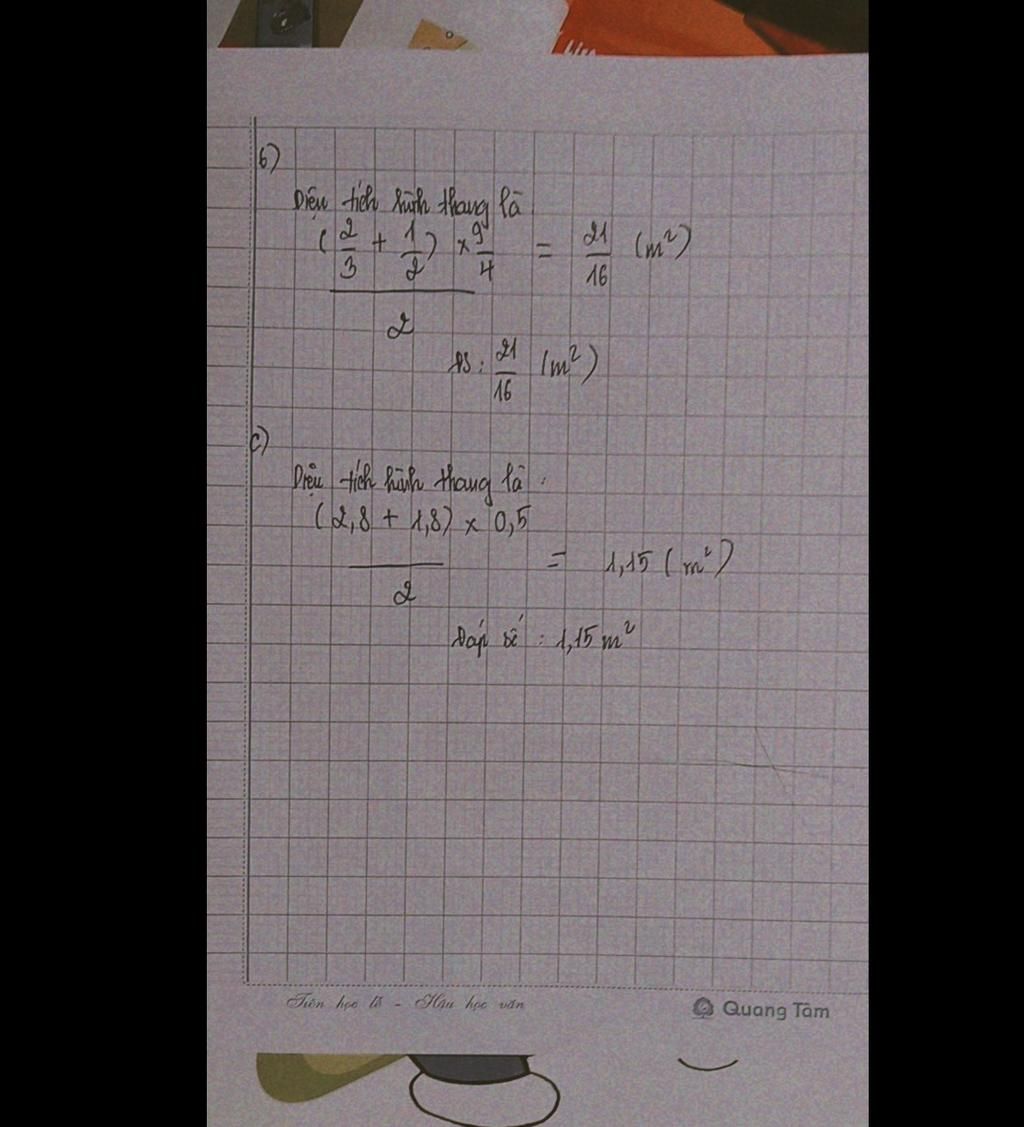 b)
Diện tích hình thang là
(2/3 + 1/2) × 9/4 = 21/16 (m²)
2
ĐS: 21/16 (m²)
c)
Diện tích hình thang là:
(2,8 + 1,8) × 0,5
= 1,15 (m²)
2
Đáp số: 1,15 m²
Tiên học lễ - Hậu học văn
Quang Tâm